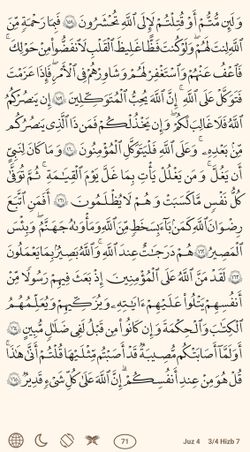 وَلَئِن مُّتُّمْ أَوْ قُتِلْتُمْ لَإِلَى ٱللَّهِ تُحْشَرُونَ ١٥٨ فَبِمَا رَحْمَةٍ مِّنَ
ٱللَّهِ لِنتَ لَهُمْ ۖ وَلَوْ كُنتَ فَظًّا غَلِيظَ ٱلْقَلْبِ لَٱنفَضُّوا۟ مِنْ حَوْلِكَ ۖ
فَٱعْفُ عَنْهُمْ وَٱسْتَغْفِرْ لَهُمْ وَشَاوِرْهُمْ فِى ٱلْأَمْرِ ۖ فَإِذَا عَزَمْتَ
فَتَوَكَّلْ عَلَى ٱللَّهِ ۚ إِنَّ ٱللَّهَ يُحِبُّ ٱلْمُتَوَكِّلِينَ ١٥٩ إِن يَنصُرْكُمُ
ٱللَّهُ فَلَا غَالِبَ لَكُمْ ۖ وَإِن يَخْذُلْكُمْ فَمَن ذَا ٱلَّذِى يَنصُرُكُم
مِّنۢ بَعْدِهِۦ ۗ وَعَلَى ٱللَّهِ فَلْيَتَوَكَّلِ ٱلْمُؤْمِنُونَ ١٦٠ وَمَا كَانَ لِنَبِىٍّ
أَن يَغُلَّ ۚ وَمَن يَغْلُلْ يَأْتِ بِمَا غَلَّ يَوْمَ ٱلْقِيَـٰمَةِ ۚ ثُمَّ تُوَفَّىٰ
كُلُّ نَفْسٍ مَّا كَسَبَتْ وَهُمْ لَا يُظْلَمُونَ ١٦١ أَفَمَنِ ٱتَّبَعَ
رِضْوَٰنَ ٱللَّهِ كَمَنۢ بَآءَ بِسَخَطٍ مِّنَ ٱللَّهِ وَمَأْوَىٰهُ جَهَنَّمُ ۚ وَبِئْسَ
ٱلْمَصِيرُ ١٦٢ هُمْ دَرَجَـٰتٌ عِندَ ٱللَّهِ ۗ وَٱللَّهُ بَصِيرٌۢ بِمَا يَعْمَلُونَ
١٦٣ لَقَدْ مَنَّ ٱللَّهُ عَلَى ٱلْمُؤْمِنِينَ إِذْ بَعَثَ فِيهِمْ رَسُولًا مِّنْ
أَنفُسِهِمْ يَتْلُوا۟ عَلَيْهِمْ ءَايَـٰتِهِۦ وَيُزَكِّيهِمْ وَيُعَلِّمُهُمُ
ٱلْكِتَـٰبَ وَٱلْحِكْمَةَ وَإِن كَانُوا۟ مِن قَبْلُ لَفِى ضَلَـٰلٍ مُّبِينٍ ١٦٤
أَوَلَمَّآ أَصَـٰبَتْكُم مُّصِيبَةٌ قَدْ أَصَبْتُم مِّثْلَيْهَا قُلْتُمْ أَنَّىٰ هَـٰذَا ۖ
قُلْ هُوَ مِنْ عِندِ أَنفُسِكُمْ ۗ إِنَّ ٱللَّهَ عَلَىٰ كُلِّ شَىْءٍ قَدِيرٌ ١٦٥
71 Juz 4 3/4 Hizb 7